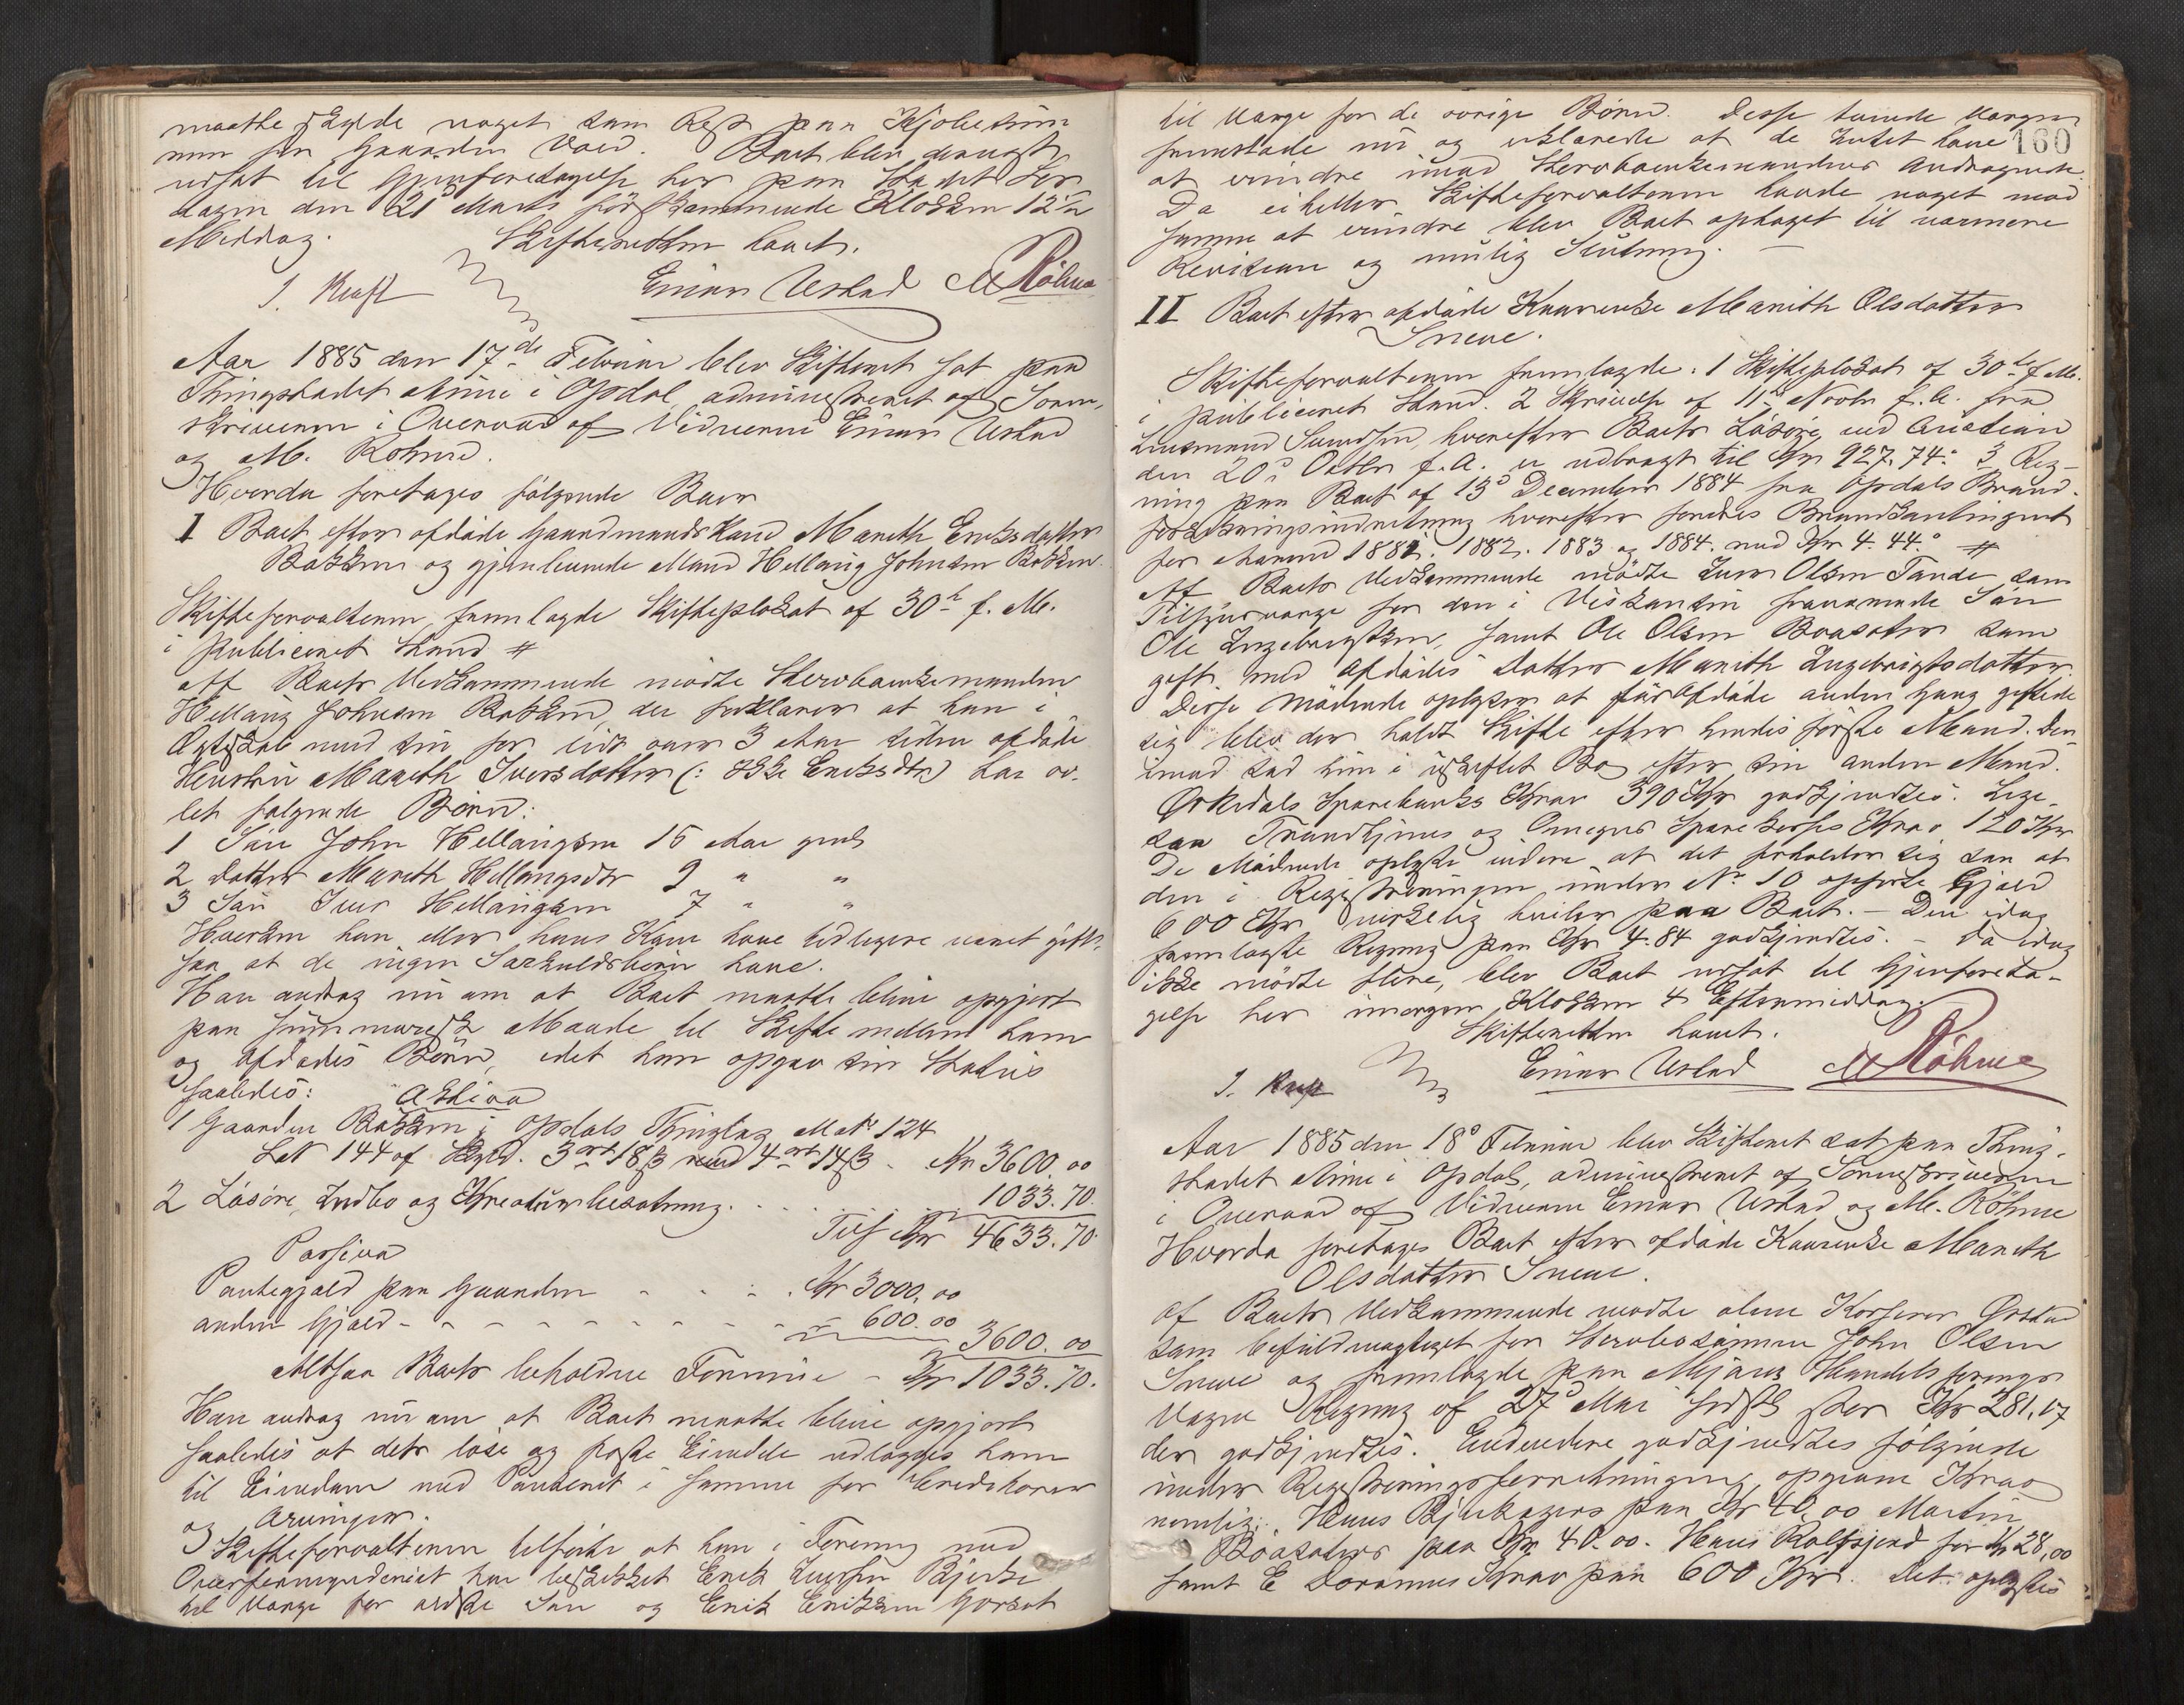 maatte skylde noget som Rest paa Kjøbesum
men for Gaarden Vold. Boet blev derengst
udsat til Gjenforetagelse her paa Stedet Lør
dagen den 21de Marts førstkommende Klokken 12
Middag.
Skifteretten hævet.
J. Kraft Einar Ustad M Röhme
Aar 1885 den 17de Februar blev Skifteret sat paa
Thingstedet Aune i Opdal administreret af Soren
skriveren i Overvær af Vidnerne Einar Ustad
og M. Rohme.
Hvorda foretages følgende Boer
I Boet efter afdøde Gaardmandskone Marith Eriksdatter
Bakken og gjenlevende Mand Hellaug Johnsen Bakken.
Skifteforvalteren fremlagde Skifteplakat af 30te f. M.
i publiceret Stand #
Af Boets Vedkommende mødte Stervboenkemanden
Hellaug Johnsen Bakken, der forklarer at han i
Ægteskab med sin for lidt over 3 Aar siden afdøde
Hustru Marith Iversdatter (: ikke Eriksdtr) har av-
let følgende Børn:
1 Søn John Hellaugsen 15 Aar gml
2 Datter Marith Hellaugsdtr 9 " "
3 Søn Iver Hellaugsen 7 " "
Hverken han eller hans Kone have tidligere været gift,
saa at de ingen Særkuldsbørn have.
Han androg nu om at Boet maatte blive opgjort
paa summarisk Maade til Skifte mellem ham
og Afdødes Børn, idet han opgav sin Status
saaledes: Aktiva
1 Gaarden Bakken i Opdals Thinglag Mat. No 124
Løb 144 af Skyld. 3 ort 18 ß med 4 ort 14 ß. Kr 3600.00
2 Løsøre, Indbo og Kreaturbesætning. . . 1033.70
Tils Kr 4633.70
Passiva
Pantegjæld paa Gaarden - - - . Kr 3000.00
anden Gjæld - - - - - - - - 600.00
3600.00
Altsaa Boets beholdne Formue - Kr 1033.70.
Han androg nu om at Boet maatte blive opgjort
saaledes at dets løse og faste Eiendele udlægges ham
til Eiendom med Panteret i samme for Kreditorer
og Arvinger.
Skifteforvalteren tilførte at han i Forening med
Overformynderiet har beskikket Erik Iversen Bjerke
til Værge for ældste Søn og Erik Eriksen Gorset
160
til Værge for de øvrige Børn. Disse tvende Værger
fremstode nu og erklærede at de Intet have
at erindre imod Stervboenkemandens Andragende.
Da eiheller Skifteforvalteren havde noget mod
samme at erindre blev Boet optaget til nærmere
Revision og mulig Slutning.
II Boet efter afdøde Kaarenke Marith Olsdatter
Sneve.
Skifteforvalteren fremlagde. 1 Skifteplakat af 30te f. M.
i publiceret Stand. 2 Skrivelse af 11te Novbr f. A. fra
Lensmand Sundsem, hvorefter Boets Løsøre ved Auction
den 20de Octbr f. A. er udbragt til Kr 927.74. 3 Reg-
ning paa Boet af 13de December 1884 fra Opdals Brand-
forsikringsindretning hvorefter fordres Brandkontingent
for Aarene 1881. 1882. 1883 og 1884. med Kr 4.44. #
Af Boets Vedkommende mødte Iver Olsen Tande som
Tilsynsværge for den i Wiskonsin fraværende Søn
Ole Ingebrigtsen, samt Ole Olsen Boasæter som
gift med Afdødes Datter Marith Ingebrigtsdatter.
Disse Mødende oplyser at før Afdøde anden Gang giftede
sig blev der holdt Skifte efter hendes første Mand. Der-
imod sad hun i uskiftet Bo efter sin anden Mand.
Orkedals Sparebanks Krav 390 Kr godkjendtes. Lige-
saa Trondhjems og Omegns Sparekasses Krav 120 Kr
De Mødende oplyste videre at det forholder sig saa at
den i Registreringen under No 10 opførte Gjæld
600 Kr virkelig hviler paa Boet. - Den idag
fremlagte Regning paa Kr 4.84 godkjendtes. - Da idag
ikke mødte flere, blev Boet udsat til Gjenforeta-
gelse her imorgen Klokken 4 Eftermiddag.
Skifteretten hævet.
J. Kraft Einar Ustad M Röhme
Aar 1885 den 18de Februar blev Skifteret sat paa Thing-
stedet Aune i Opdal, administreret af Sorenskriveren
i Overvær af Vidnerne Einar Ustad og M. Röhme
Hvorda foretages Boet efter afdøde Kaarenke Marith
Olsdatter Sneve.
Af Boets Vedkommende mødte alene Kasserer Ørstad
som befuldmægtiget for Stervbosønnen John Olsen
Sneve og fremlagde paa Mjøens Handelsforenings
Vegne Regning af 27de Mai stor Kr 281.17
der godkjendtes. Endvidere godkjendtes følgende
under Registreringsforretningen opgivne Krav
nemlig: Hans Bjerkagers paa Kr 40.00 Martin
Boasæters paa Kr 40.00. Hans Rolfsjord for Kr 28.00
samt E Dørums Krav paa 600 Kr. Det oplystes